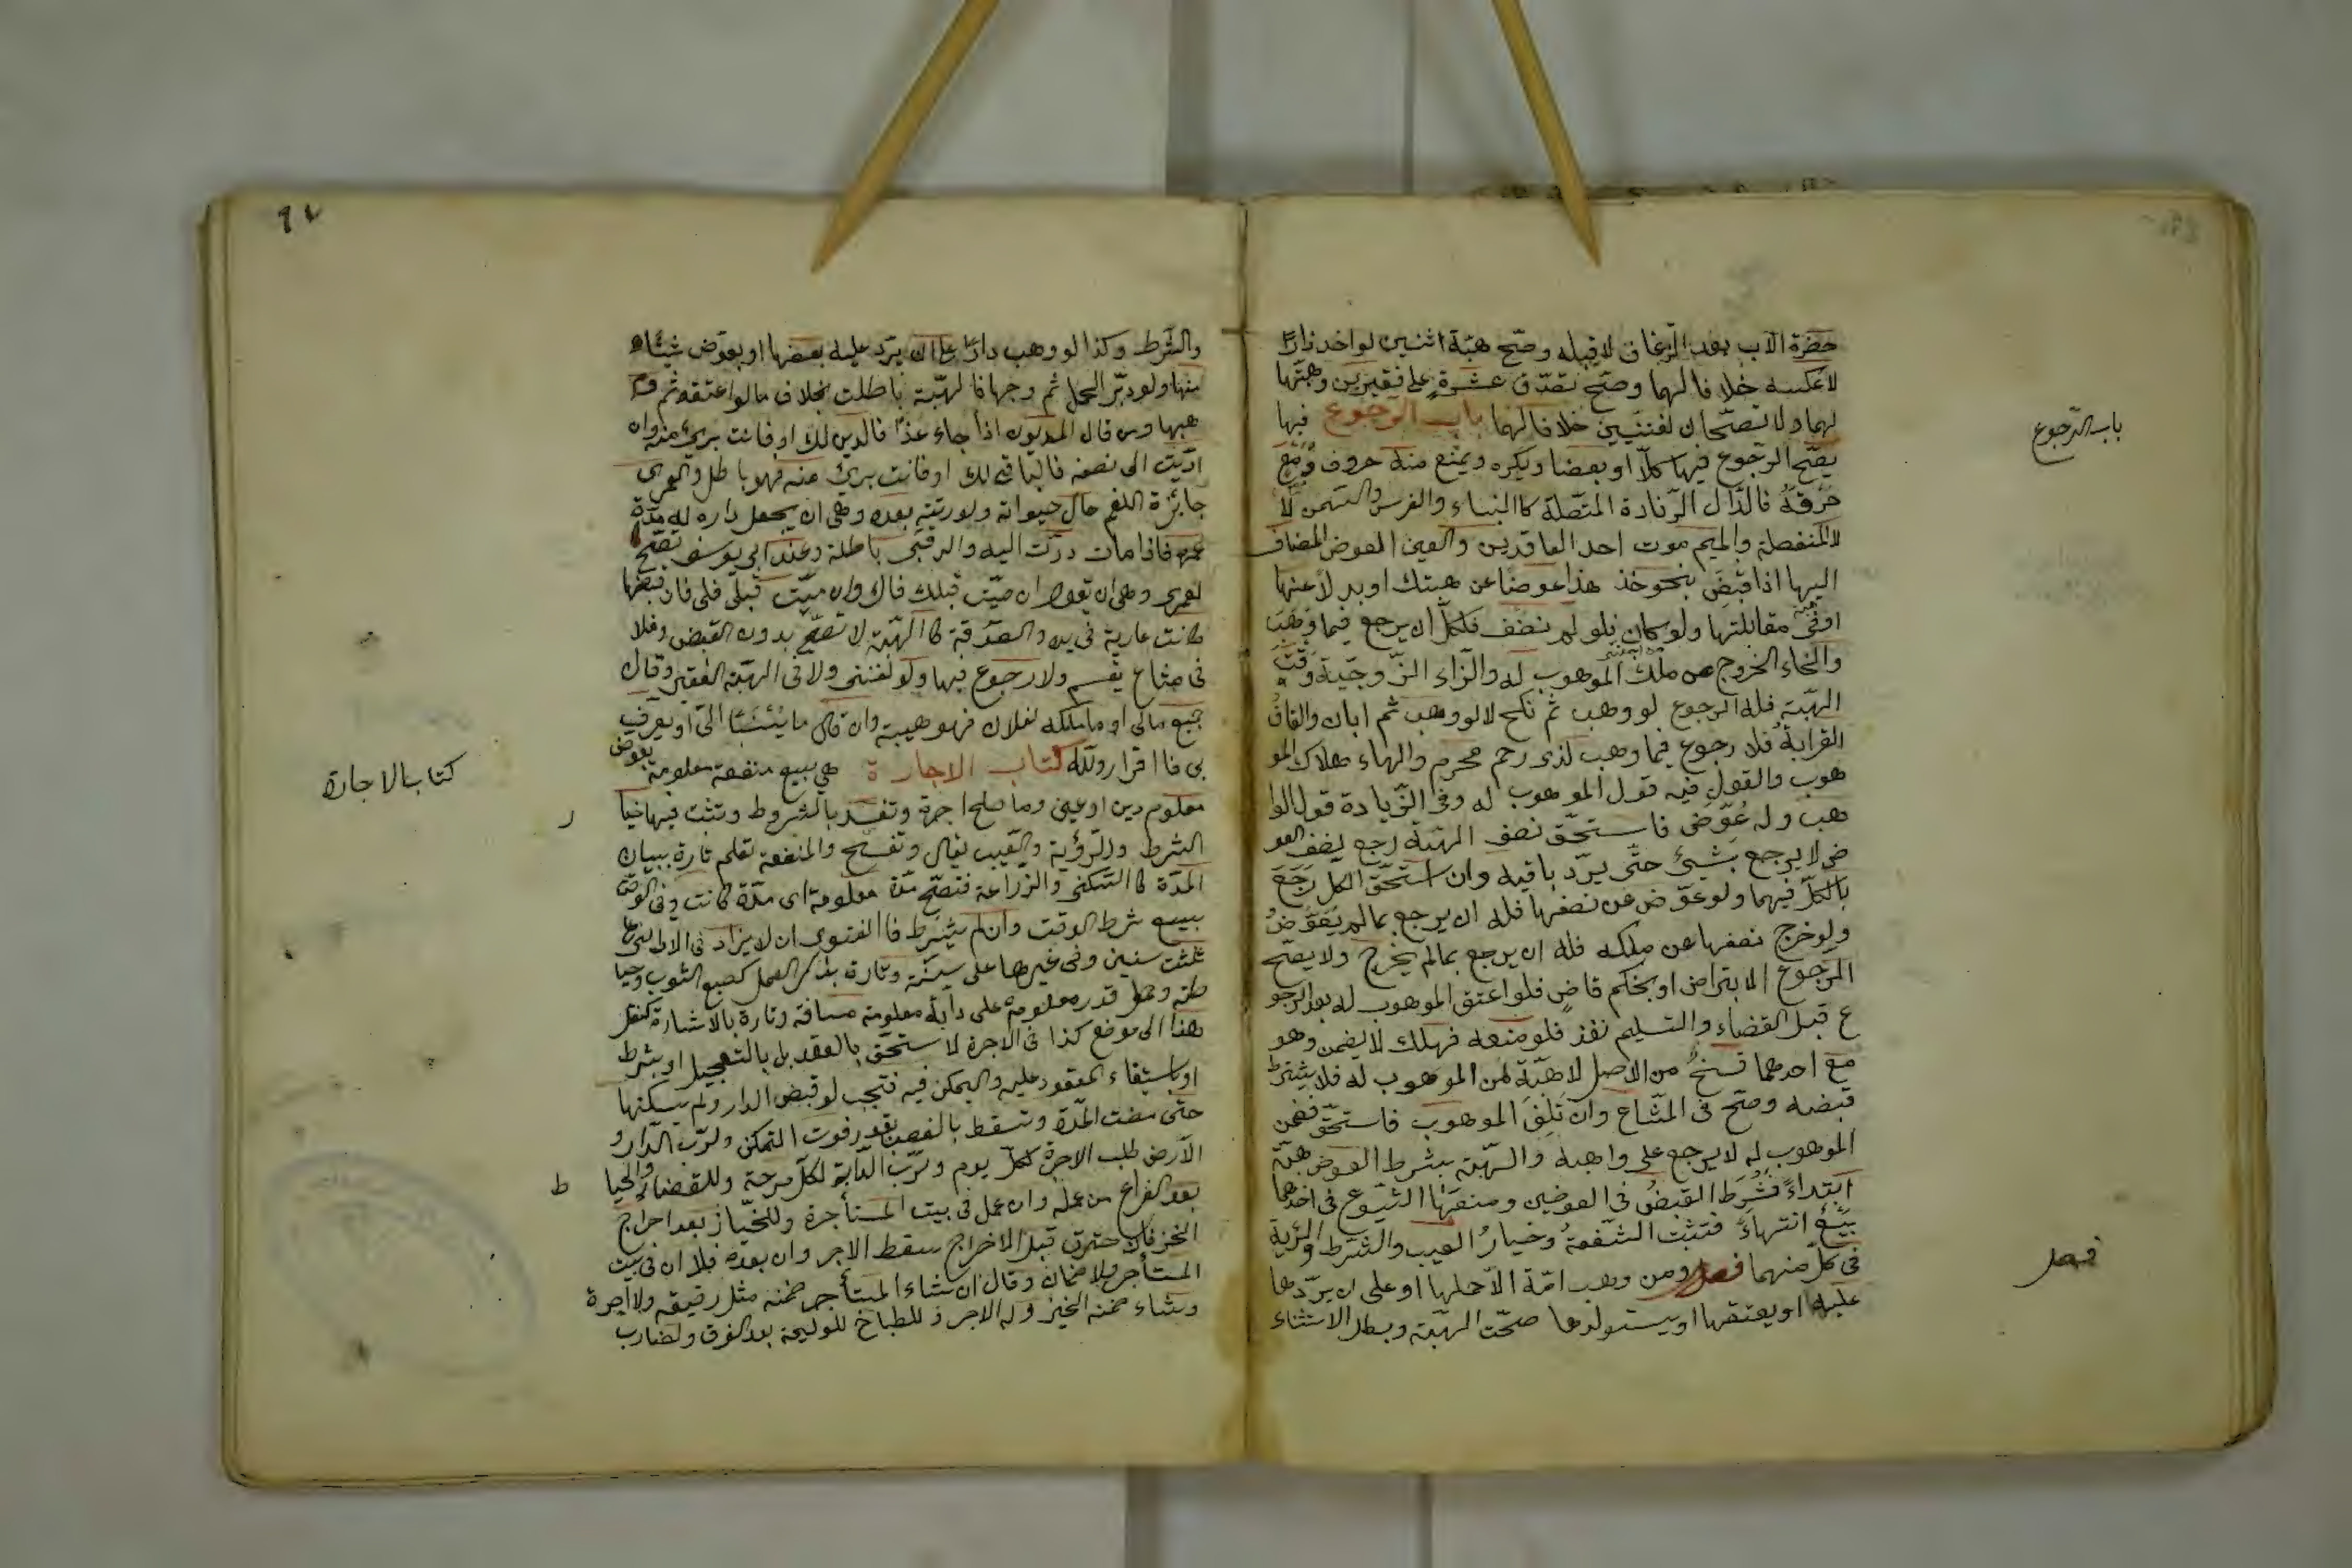 حضرة الاب بعد الزفاف لا قبله وصحّ هبة اثنين لواحد دارًا
لا عكسه خلافا لهما وصحّ تصدّق عشرة على فقيرين وهبتها
لهما ولا تصحّان لغنيين خلافا لهما باب الرجوع فيها
يصحّ الرجوع فيها كلّا او بعضا ويكره ويمنع منه حروف دمع
خزقه فالدّال الزيادة المتّصلة كالبناء والغرس والسمن لا
لا المنفصلة والميم موت احد العاقدين والعين العوض المضاف
اليها اذا قبض بنحو خذ هذا عوضًا عن هبتك او بدلا عنها
او فى مقابلتها ولو كان فلو لم يضف فلكلّ ان يرجع فيما وهب
والخاء الخروج عن ملك الموهوب له والزاء الزّوجيّة وقت
الهبّة فله الرجوع لو وهب ثم نكح لا لو وهب ثم ابان والقاف
القرابة فلا رجوع فيما وهب لذى رحم محرم والهاء هلاك المو
هوب والقول فيه قول الموهوب له وفى الزّيادة قول الوا
هب ولو عوّض فاستحقّ نصف الهبّة رجع بنصف العو
ض لا يرجع بشئ حتّى يردّ باقيه وان استحقّ الكل رجع
بالكلّ فيهما ولو عوّض عن نصفها فله ان يرجع بما لم يعوّض
ولو خرج نصفها عن ملكه فله ان يرجع بما لم يخرج ولا يصحّ
الرجوع الا بتراض او بحكم قاضٍ فلو اعتق الموهوب له بعد الرجو
ع قبل القضاء والتسليم نفذ فلو منعه فهلك لا يضمن وهو
مع احدهما فسخ من الاصل لا هبّة من الموهوب له فلا يشترط
قبضه وصحّ فى المشاع وان تلف الموهوب فاستحقّ فضمن
الموهوب له لا يرجع على واهبه والهبّة بشرط العوض هبّة
ابتداءً فشرط القبض فى العوضين ومنعها الشيوع فى احدهما
بيع انتهاءً فتثبت الشفعة وخيار العيب والشرط والرؤية
فى كلّ منهما فصل ومن وهب امّة الا حملها او على ان يردّها
عليه او يعتقها او يستولدها صحّت الهبّة وبطل الاستثناء
باب الرّجوع
فصل
والشرط وكذا لو وهب دارًا على ان يردّ عليه بعضها او يعوّض شيئًا
منها ولو دبّر الحمل ثم وهبها فالهبّة باطلت بخلاف ما لو اعتقه ثم و
هبها ومن قال لمديون اذا جاء غدًا فالدين لك او فانت برئ منه وان
ادّيت الى نصفه فالباقى لك او فانت برئ منه فهو باطل والعمرى
جائزة للمعمر حال حيواته ولورثته بعده وهى ان يجعل داره له مدّة
عمره فاذا مات ردّت اليه والرقبى باطلة وعند ابى يوسف تصحّ
لعمرى وهى ان يقول ان متّ قبلك فلك وان متّ قبلى فلى فان قبضها
كانت عارية فى يده والصدقة كالهبّة لا تصحّ بدون القبض ولا
فى مشاع يقسم ولا رجوع فيها ولو لغنى ولا فى الهبّة لفقير وقال
جميع مالى او ما املكه لفلان فهو هبة وان قال ما ينسب الىّ او يعرف
بى فاقرار وللّه كتاب الاجارة هى بيع منفعة معلومة بعوض
معلوم دين او عين وما صلح اجرة وتفسد بالشروط وتثبت فيها خيا
الشرط والرّؤية والعيب تقال وتفسخ والمنفعة تعلم تارة ببيان
المدّة كالسكنى والزراعة فتصحّ مدّة معلومة اى مدّة كانت وفى الوقف
يتبع شرط الوقت وان لم يشرط فالفتوى ان لا يزاد فى الاراضى على
ثلث سنين وفى غيرها على سنة وتارة بذكر العمل كصبغ الثوب وخيا
طته وحمل قدر معلومة على دابّة معلومة مسافة وتارة بالاشارة كنقل
هذا الى موضع كذا فى الاجرة لا ستحقّ بالعقد بل بالتعجيل او بشرط
او باستيفاء المعقود عليه والتمكن فيه فتجب لو قبض الدار ولم يسكنها
حتّى مضت المدّة وتسقط بالغصب بقدر فوت التمكن ولربّ الدّار و
الارض طلب الاجرة لكلّ يوم ولربّ الدّابة لكلّ مرحلة وللقصّار والخيا
بعد الفراغ من عمله وان عمل فى بيت المستأجرة وللخبّاز بعد اخراج
الخبز فان احترق قبل الاخراج سقط الاجر وان بعده فلا ان فى بيت
المستأجر ولا ضمان وقال ان شاء المستأجر ضمنه مثل دقيقه ولا اجرة
وشاء ضمنه الخبز وله الاجر وللطباخ للوليمة بعد الغرف ولضارب
كتاب الاجارة
ر
ط